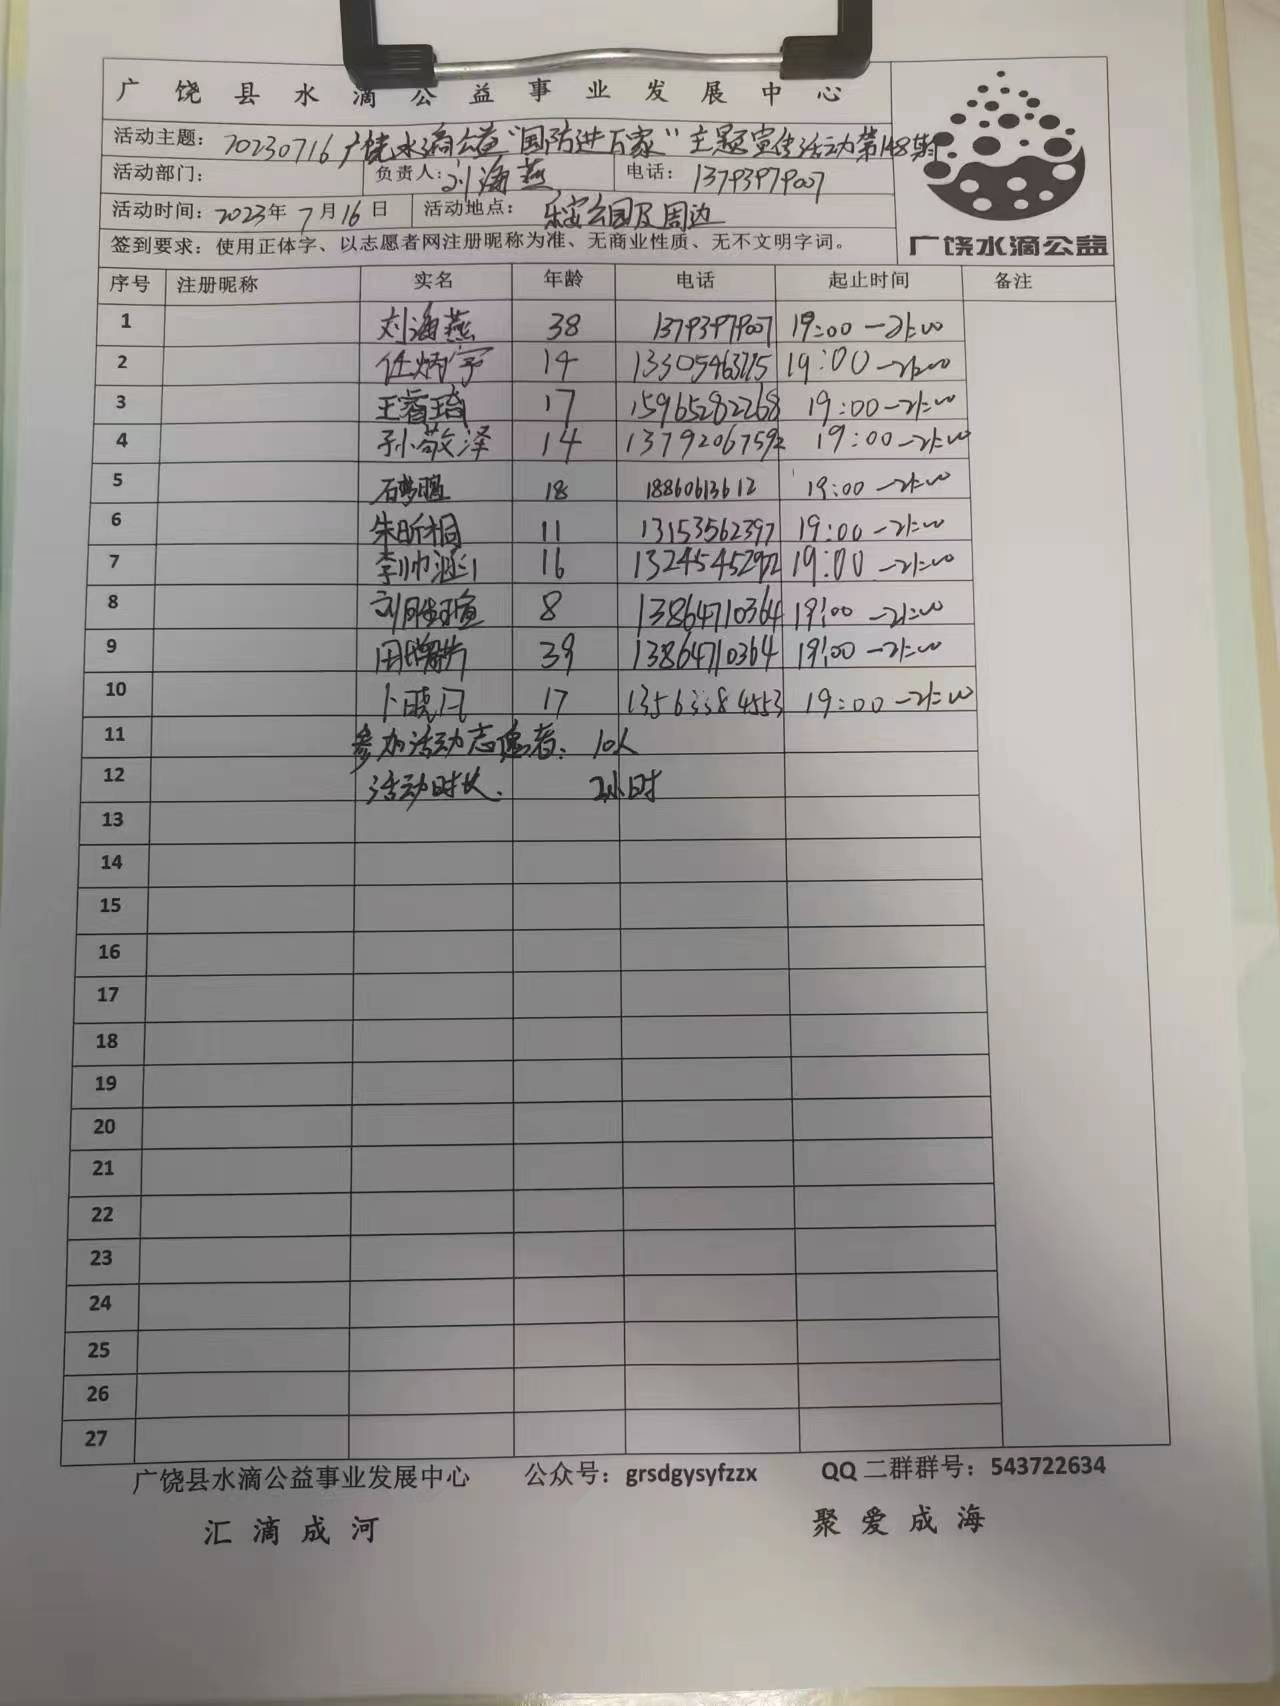 广饶县水滴公益事业发展中心
活动主题：20230716广饶水滴公益“国防进万家”主题宣传活动第148期
活动部门： 负责人：刘海燕 电话：13793979007
活动时间：2023年7月16日 活动地点：乐安公园及周边
签到要求：使用正体字、以志愿者网注册昵称为准、无商业性质、无不文明字词。
广饶水滴公益
序号 注册昵称 实名 年龄 电话 起止时间 备注
1 刘海燕 38 13793979007 19:00—21:00
2 任炳宇 14 19:00—21:00
3 王睿琦 17 15965282268 19:00—21:00
4 孙敬泽 14 13792067592 19:00—21:00
5 18 18860613612 19:00—21:00
6 朱昕桐 11 13153562397 19:00—21:00
7 李帅涵 16 13245452972 19:00—21:00
8 刘 瑄 8 13864710364 19:00—21:00
9 田 39 13864710364 19:00—21:00
10 卜晓凡 17 13563384553 19:00—21:00
11 参加活动志愿者：10人
12 活动时长. 2小时
13
14
15
16
17
18
19
20
21
22
23
24
25
26
27
广饶县水滴公益事业发展中心 公众号：grsdgysyfzzx QQ二群群号：543722634
汇滴成河 聚爱成海